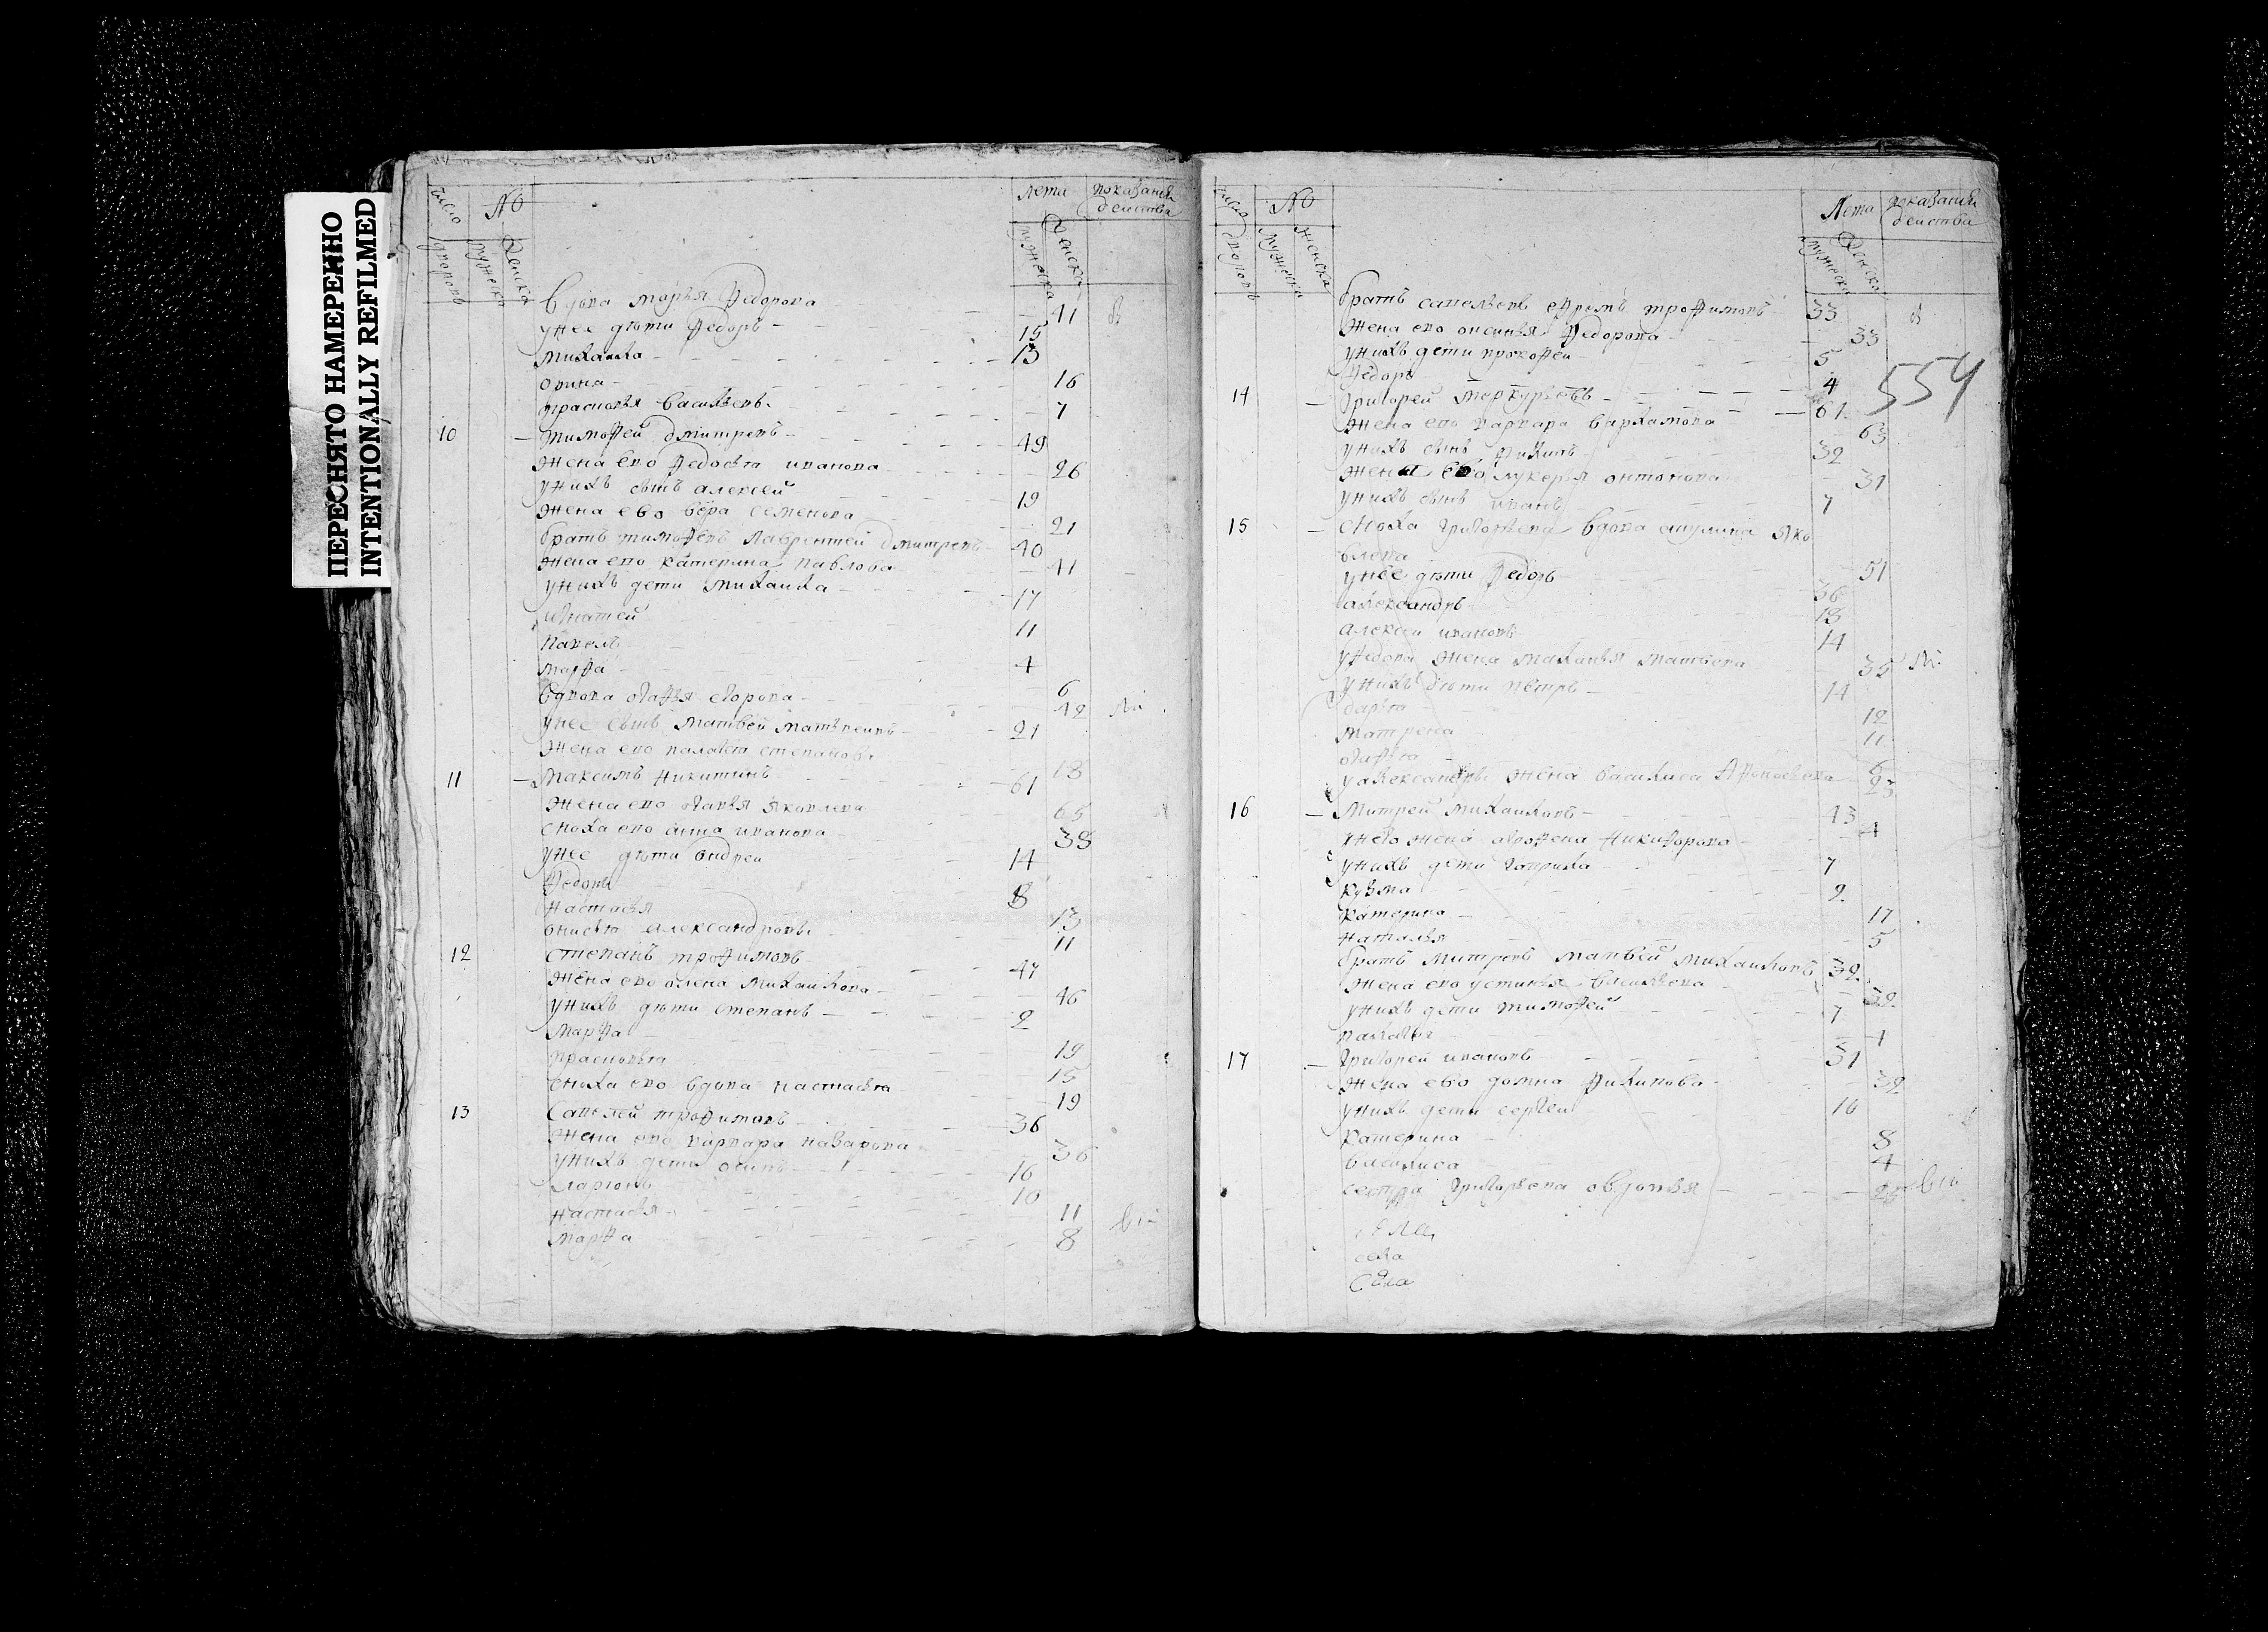 ПЕРЕСНЯТО НАМЕРЕННО
INTENTIONALLY REFILMED
число дворовъ № мужеска женска лета мужеска женска показания действа
вдова марья федорова 41 в
у нее дѣти федоръ 15
михаила 13
орина 16
прасковья васильевы 7
10 тимофей дмитревъ 49
жена ево федосья иванова 26
у нихъ сынъ алексей 19
жена ево вера семенова 21
братъ тимофеевъ лаврентей дмитревъ 40
жена ево катерина павлова 41
у нихъ дети михаила 17
игнатей 11
павелъ 4
марфа 6
вдова агафья егорова 42
у нее сынъ матвей матвеивъ 21
жена ево палагея степанова 18
11 максимъ никитинъ 61
жена ево агафья яковлева 65
сноха ево анна иванова 38
у нее дѣти андреи 14
федоръ 8
настасья 13
анисья александровы 11
12 степанъ трофимовъ 47
жена ево алена михаилова 46
у нихъ дѣти степанъ 2
марфа 19
прасковья 15
сноха ево вдова настасья 19
13 савелей трофимовъ 36
жена ево варвара назарова 36
у нихъ дети осипъ 16
ларионъ 10
настасья 11
марфа 8
число дворовъ № мужеска женска Лета мужеска женска показания действа
братъ савельевъ ефремъ трофимовъ 33 в
жена ево оксинья федорова 33
у нихъ дети прокофеи 5
федоръ 4
554
14 григорей меркурьевъ 61
жена ево варвара варламова 63
у нихъ сынъ филипъ 32
жена ево лукерья онтонова 31
у нихъ сынъ иванъ 7
15 сноха григорьева вдова акулина яко
влева 51
у нее дѣти федоръ 36
александръ 18
алексеи ивановы 14
у федора жена маланья матвева 35
у нихъ дѣти петръ 14
дарья 12
матрена 11
агафья 6
у александра жена василиса 23
16 митрей михаиловъ 43
у него жена аграфена никифорова
у нихъ дети гаврила 7
кузма 2
катерина 17
наталья 5
братъ митревъ матвей михаиловъ 32
жена ево устинья васильева 32
у нихъ дети тимофей 7
палагея 1
17 григорей ивановъ 31
жена ево домна филипова 32
у нихъ дети сергеи 10
катерина 8
василиса 4
сестра григорьева авдотья 25